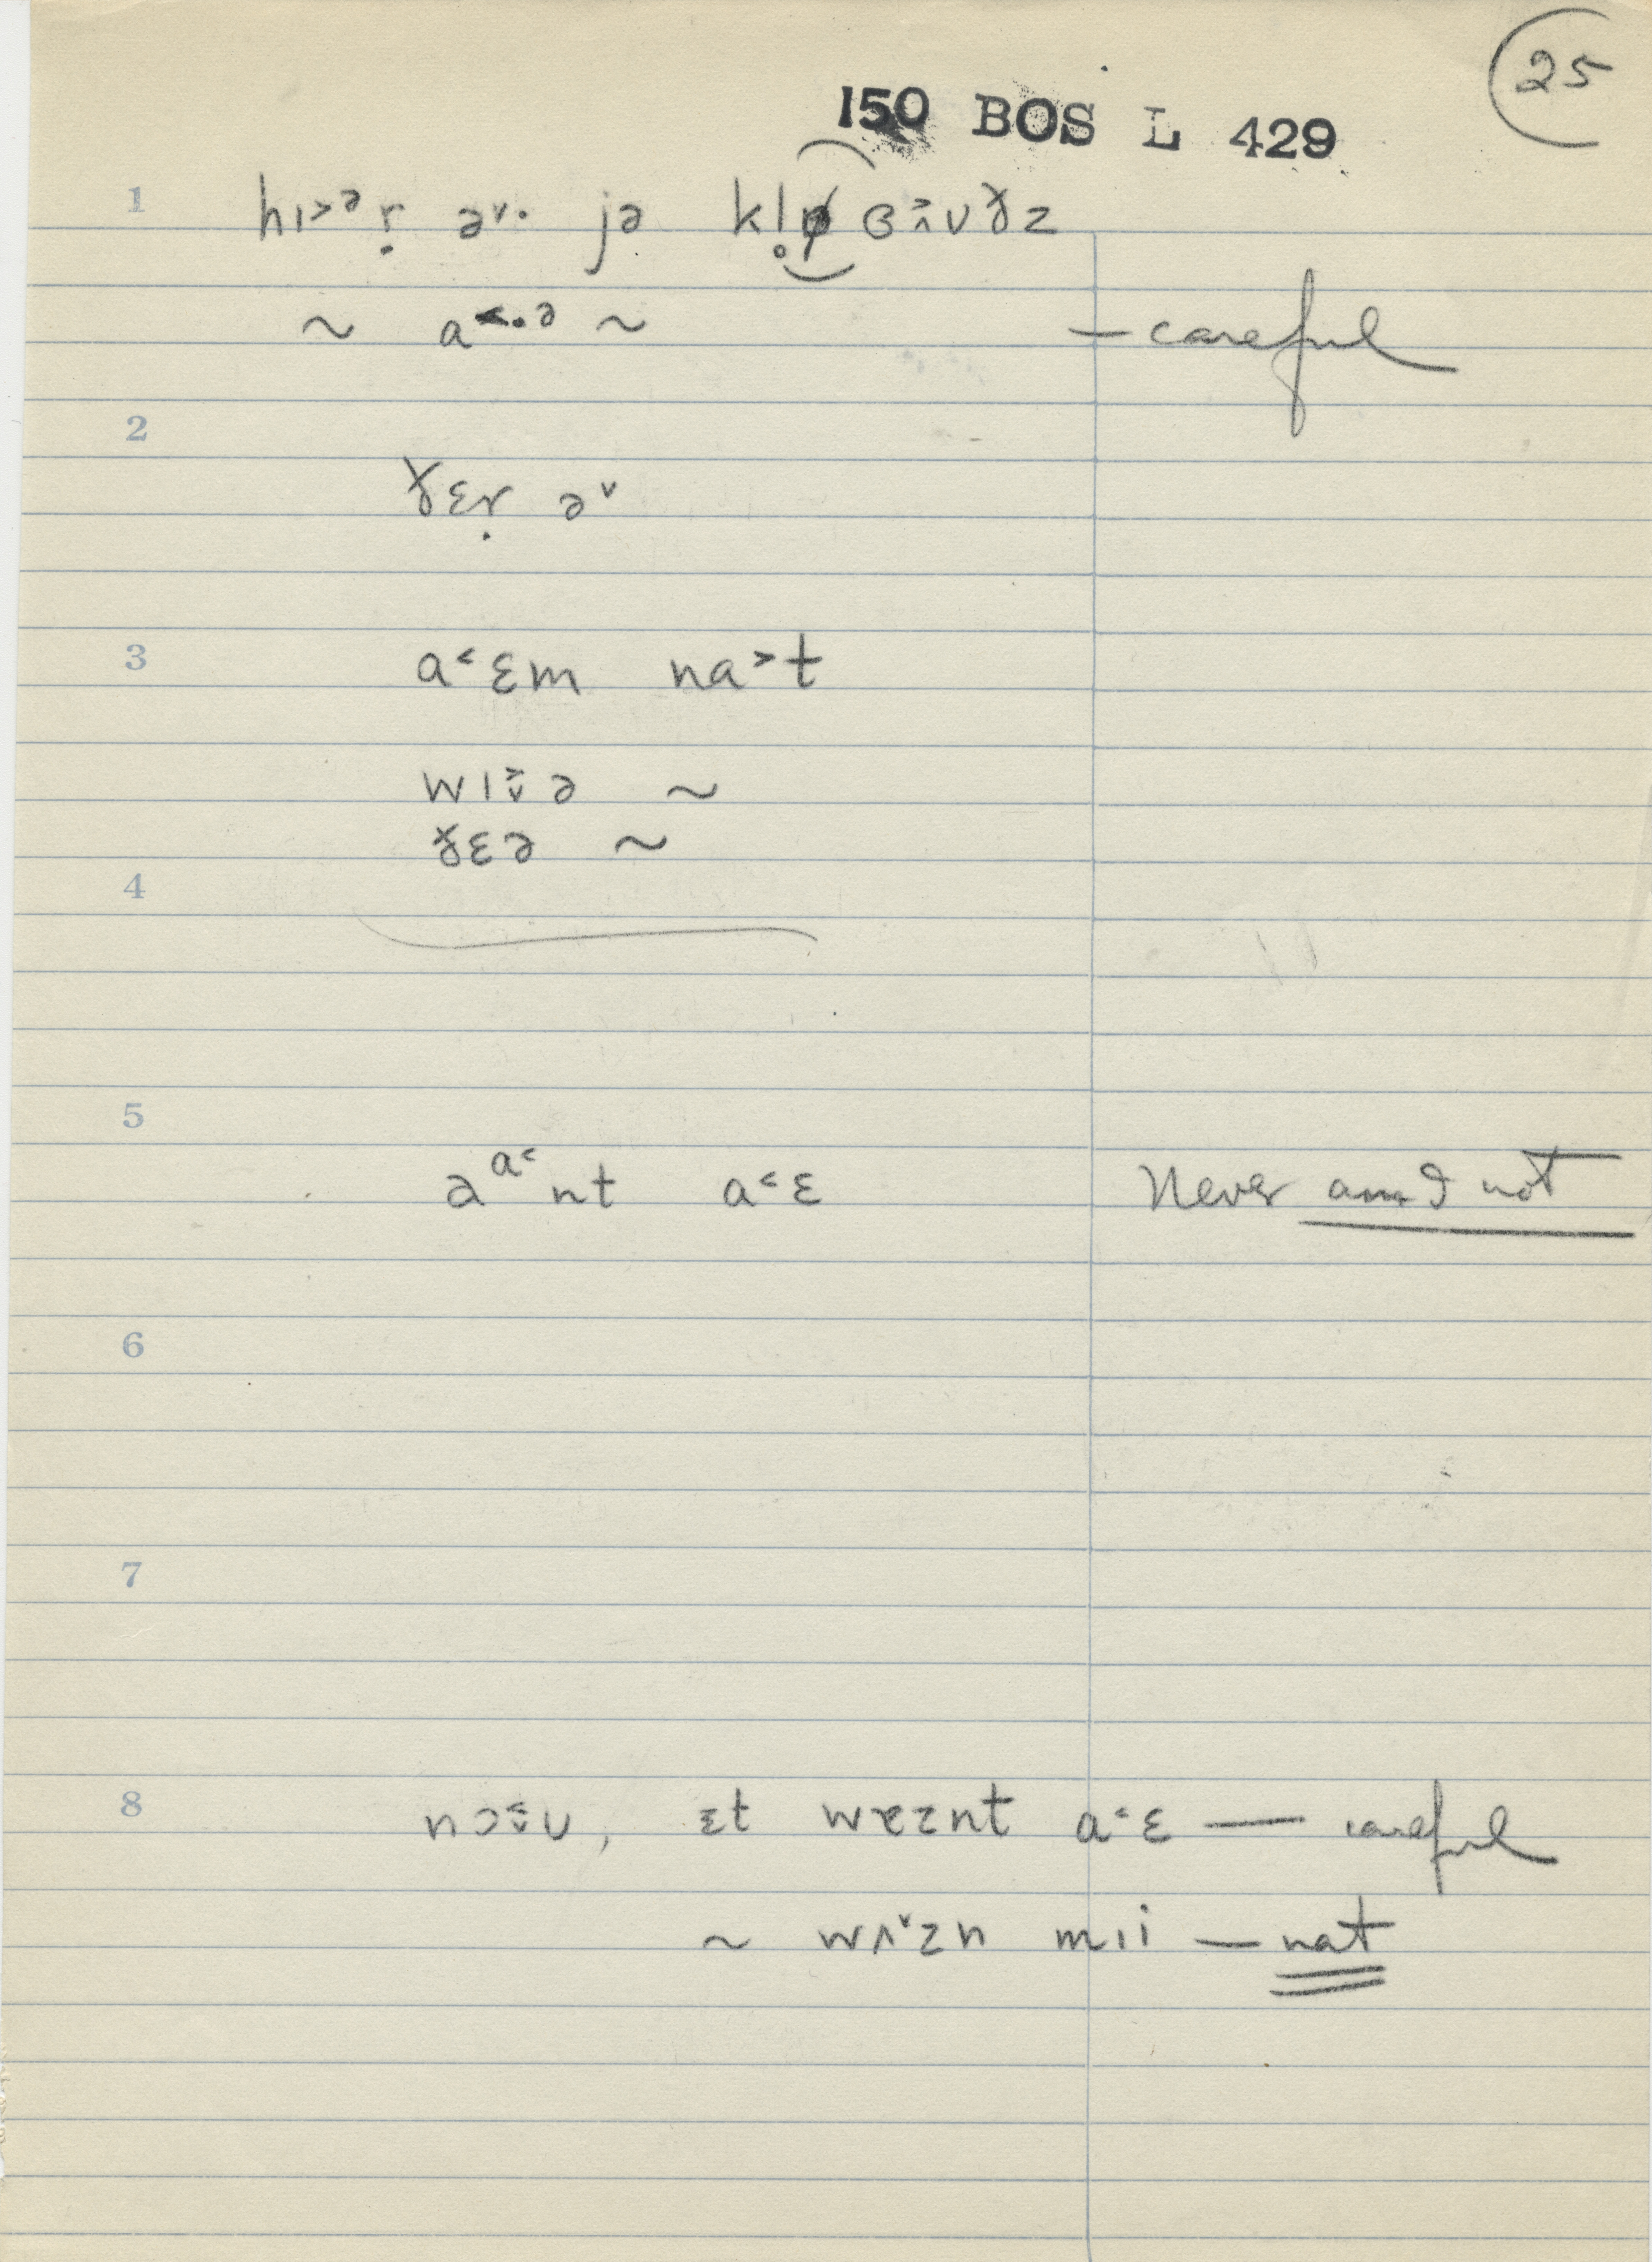 25
150 BOS L 429
1 hɪ˃ᵊṛ ə˅· jə kl̥ o ɪ̭̃ ʊ ðz
~ a˂·ᵊ ~ — careful
2
ðɛṛ ə˅
3 a˂ɛm na˃t
wɪ˅̃ə ~
ðɛə ~
4
5
ə a˂ nt a˂ɛ Never am I not
6
7
8 nɔ˂̬ʊ, ɪt wɐznt a˂ɛ — careful
~ wʌ˅zn mɪi — nat